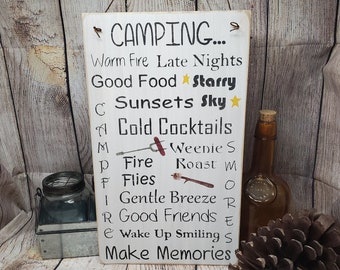 CAMPING...
Warm Fire Late Nights
Good Food Starry
Sunsets Sky
Cold Cocktails
Weenie
Fire Roast
Flies
Gentle Breeze
Good Friends
Wake Up Smiling
Make Memories
CAMPFIRE
SMORES